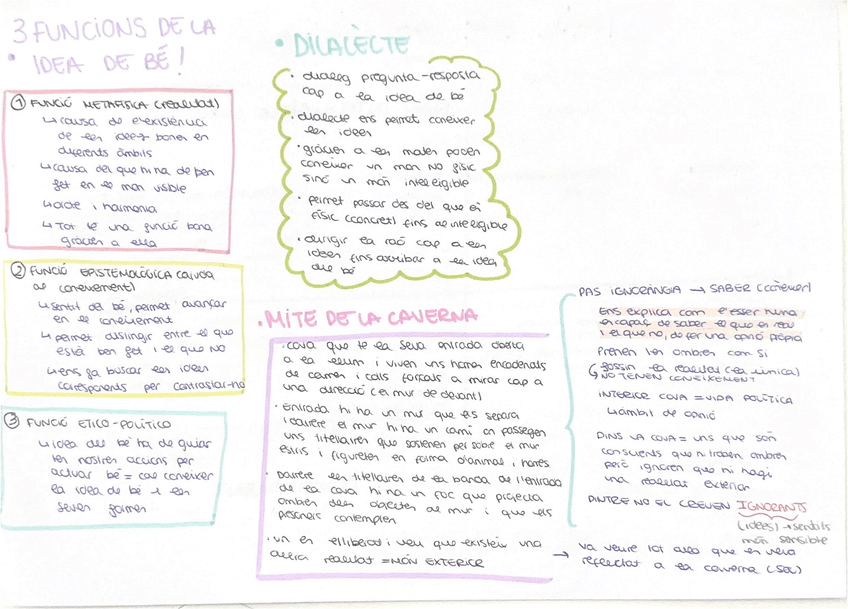 3 FUNCIONS DE LA
• IDEA DE BÉ!
① FUNCIÓ METAFÍSICA (realitat)
↳ causa de l'existència
de les idees bones en
diferents àmbits
↳ causa del que hi ha de ben
fet en el món visible
↳ ordre i harmonia
↳ Tot té una funció bona
gràcies a ella
② FUNCIÓ EPISTEMOLÒGICA (ajuda
al coneixement)
↳ sentit del bé, permet avançar
en el coneixement
↳ permet distingir entre el que
està ben fet i el que no
↳ ens fa buscar les idees
corresponents per contrastar-ho
③ FUNCIÓ ETICO-POLÍTICO
↳ idea del bé ha de guiar
les nostres accions per
actuar bé = cal conèixer
la idea de bé i les
seves formes
• DIÀLÈCTE
• diàleg pregunta-resposta
cap a la idea de bé
• dialecte ens permet conèixer
les idees
• gràcies a les mates podem
conèixer un món NO físic
sinó un món intel·ligible
• permet passar des del que és
físic (concret) fins al intel·ligible
• dirigir la raó cap a les
idees fins arribar a la idea
de bé
• MITE DE LA CAVERNA
• cova que té la seva entrada oberta
a la llum i viuen uns homes encadenats
de cames i colls forçats a mirar cap a
una direcció (el mur de davant)
• Entrada hi ha un mur que els separa
i darrere el mur hi ha un camí on passegen
uns titellaires que sostenen per sobre el mur
estris i figuretes en forma d'animals i homes
• Darrere els titellaires de la banda de l'entrada
de la cova hi ha un foc que projecta
ombres dels objectes al mur i que els
presoners contemplen
• un és alliberat i veu que existeix una
altra realitat = MÓN EXTERIOR
PAS IGNORÀNCIA → SABER (conèixer)
Ens explica com l'ésser humà
és capaç de saber el que és real
i el que no, de fer una opinió pròpia
Prenen les ombres com si
fossin la realitat (la única)
↳ NO TENEN CONEIXEMENT
INTERIOR COVA = VIDA POLÍTICA
↳ àmbit de opinió
DINS LA COVA = uns que són
conscients que hi troben ombres
però ignoren que hi hagi
una realitat exterior
DINTRE NO EL CREUEN IGNORANTS
(idees) → sentits
món sensible
→ va veure tot allò que es veia
reflectat a la caverna (SOL)